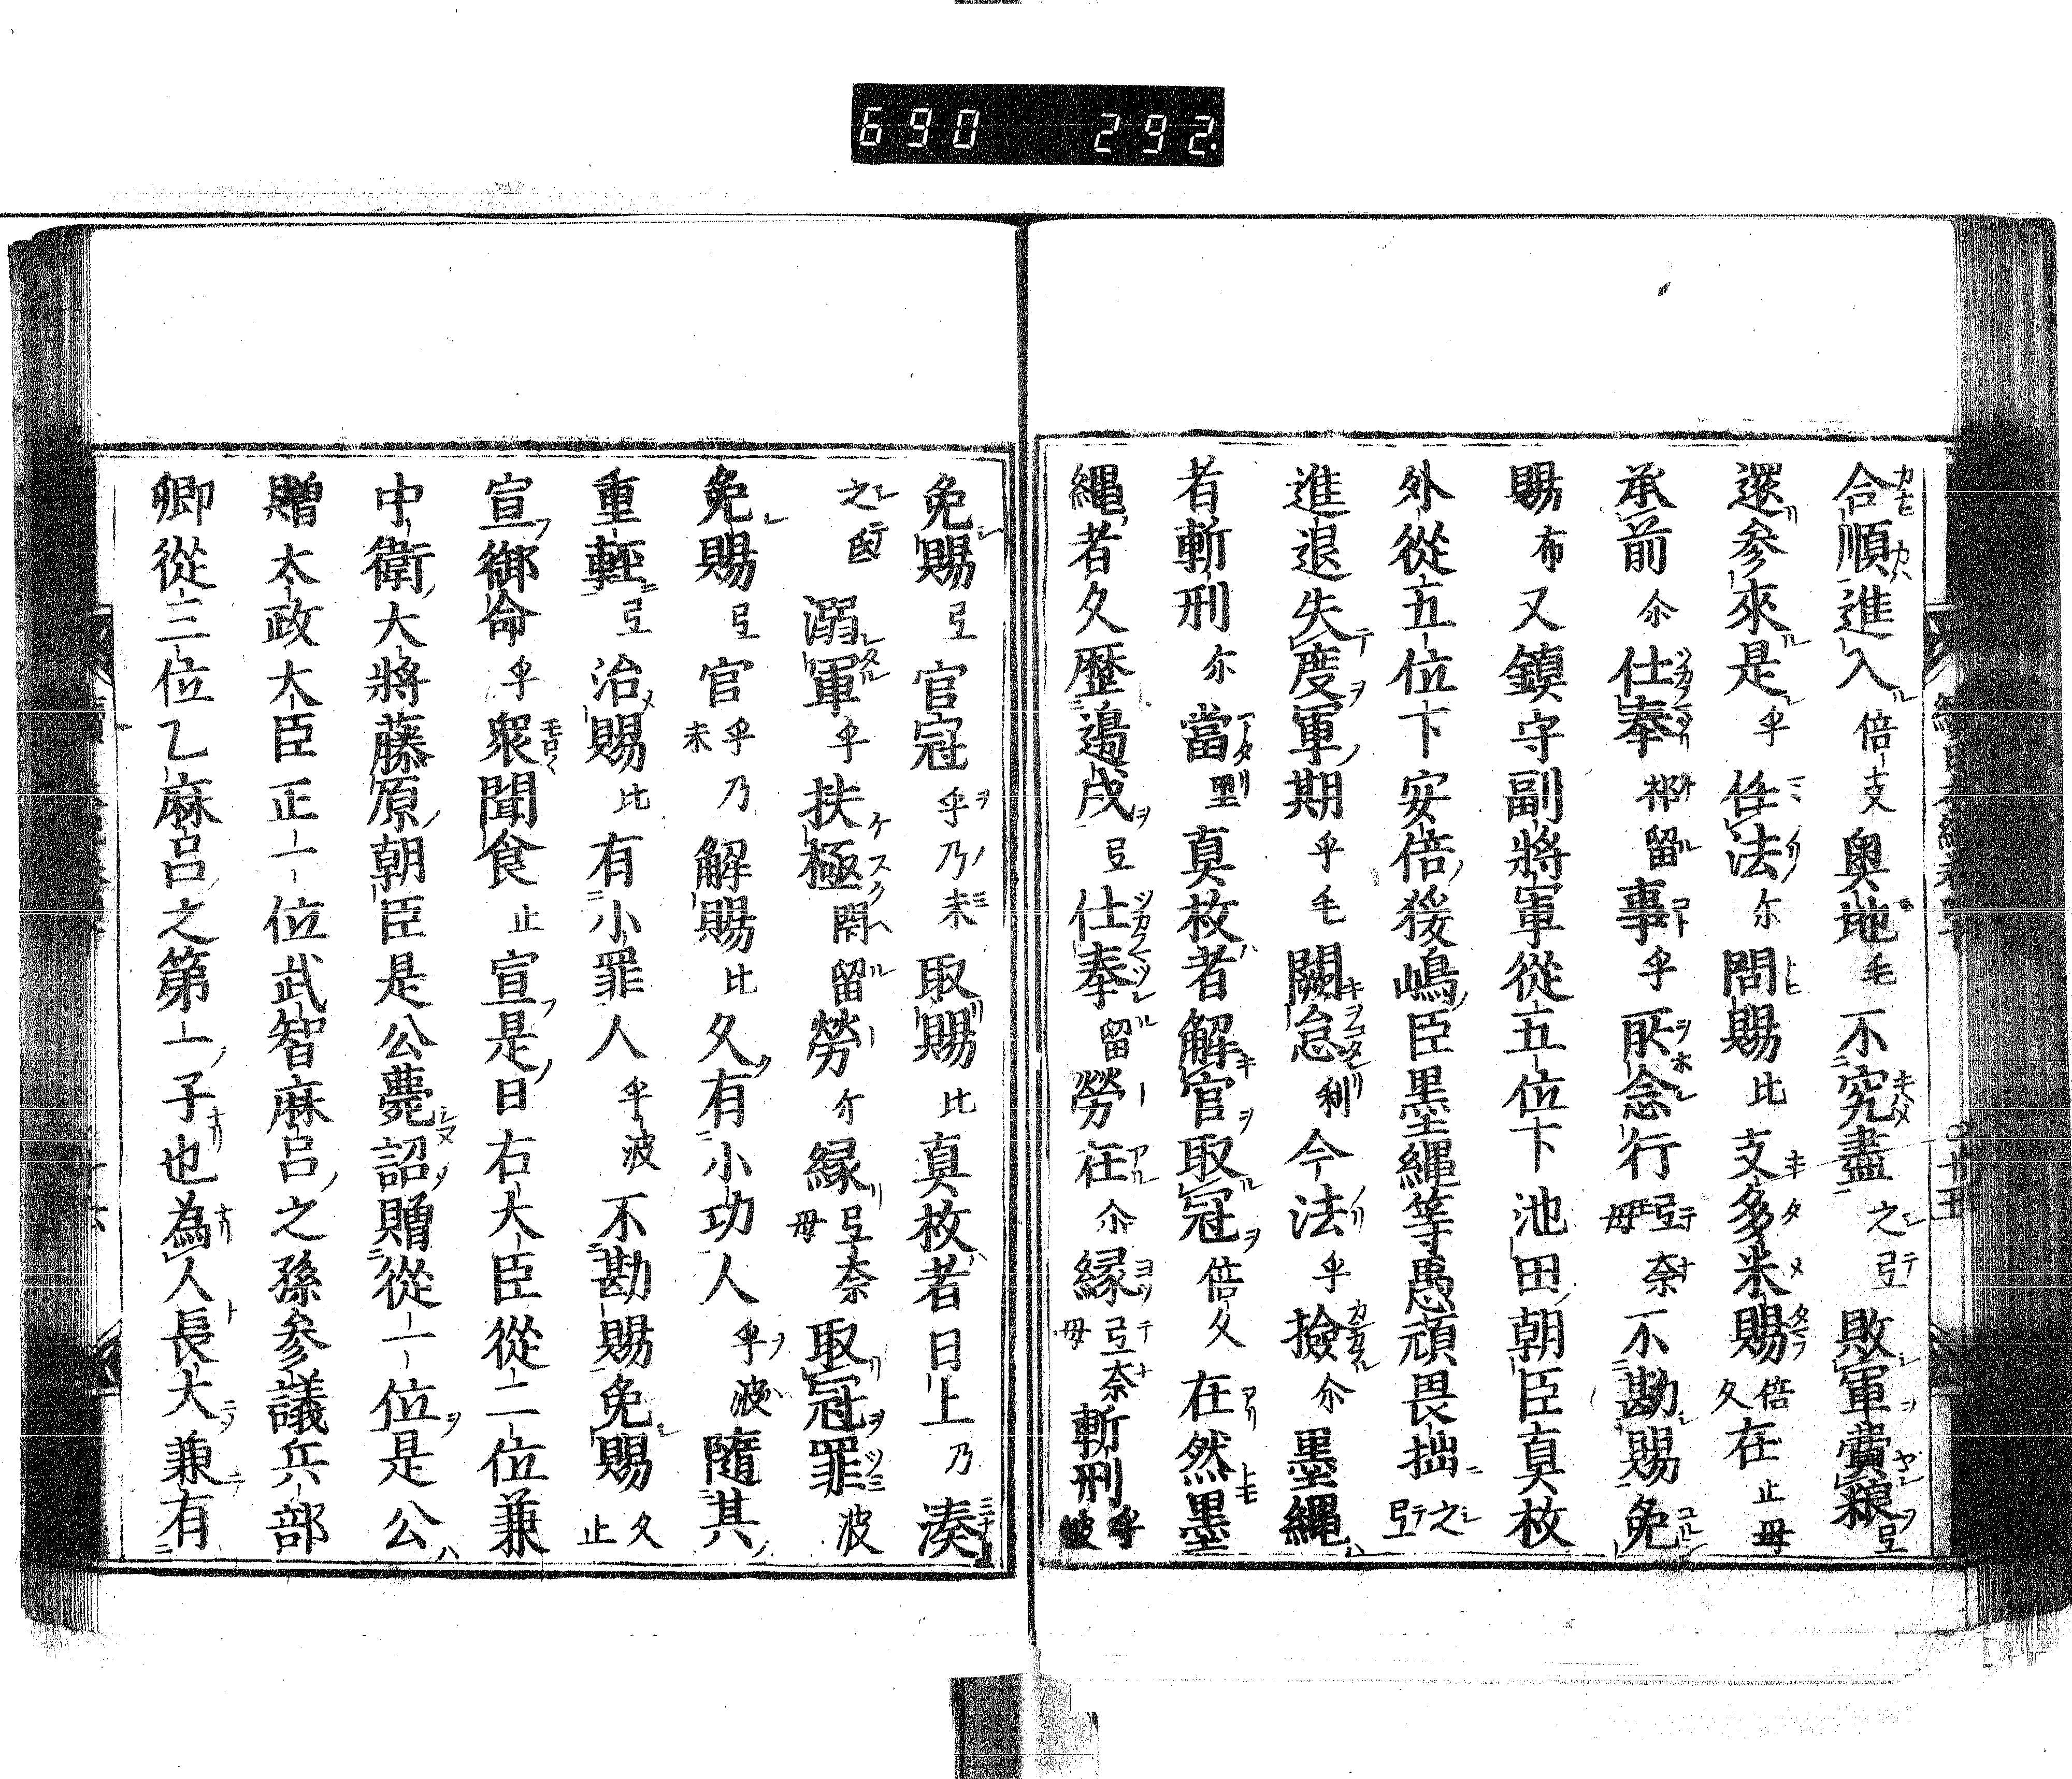 690 292
合順進入倍支奥地毛不究盡之弖敗軍賞粮弖
還参來是乎任法尓問賜比支多米賜倍久在止毋
承前尓仕奉祁留事乎所念行弖奈毋不勘賜免
賜布又鎮守副將軍從五位下池田朝臣真枚
外從五位下安倍猨嶋臣墨繩等愚頑畏拙之弖
進退失度軍期乎毛闕怠利今法乎撿尓墨繩
者斬刑尓當里真枚者解官取冠倍久在然墨
繩者久歴邉戍弖仕奉留勞在尓縁弖奈毋斬刑乎波
免賜弖官冠乎乃未取賜比真枚者日上乃湊
之弖溺軍乎扶極閇留勞尓縁弖奈毋取冠罪波
免賜弖官乎乃未解賜比久有小功人乎波隨其
重輕弖治賜比有小罪人乎波不勘賜免賜久止
宣御命乎衆聞食止宣是日右大臣從二位兼
中衛大將藤原朝臣是公薨詔贈從一位是公
贈太政大臣正一位武智麻呂之孫参議兵部
卿從三位乙麻呂之第一子也為人長大兼有